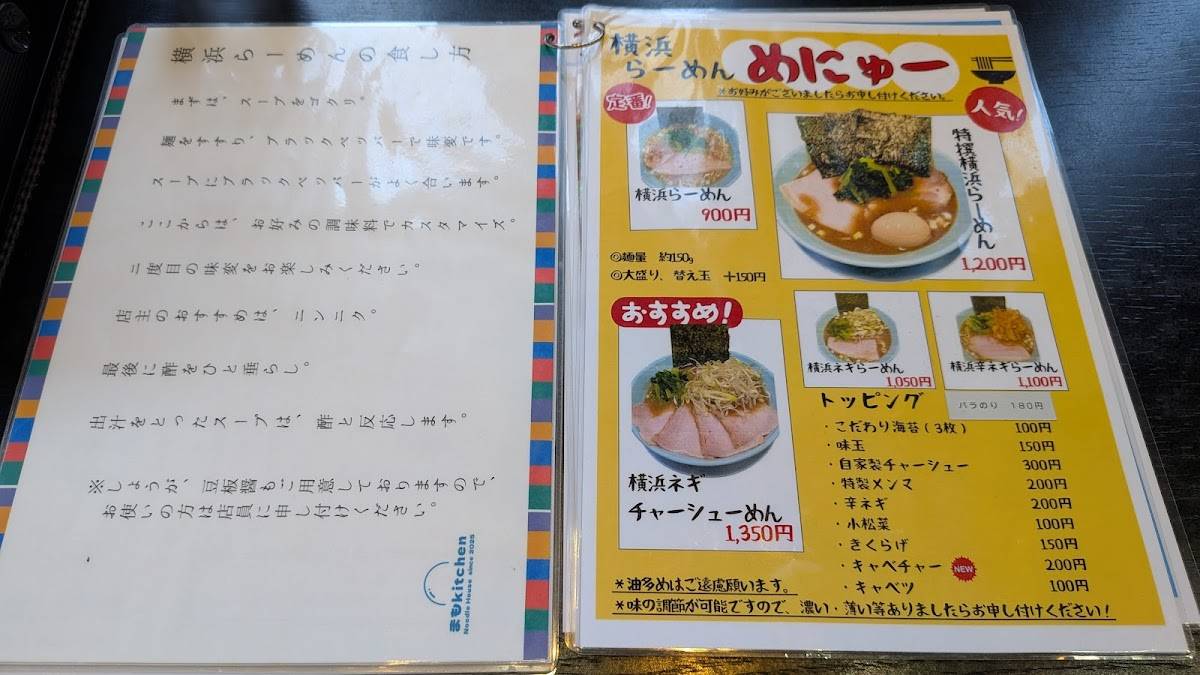 横浜らーめんの食し方
まずは、スープをゴクリ。
麺をすすり、ブラックペッパーで味変です。
スープにブラックペッパーがよく合います。
ここからは、お好みの調味料でカスタマイズ。
二度目の味変をお楽しみください。
店主のおすすめは、ニンニク。
最後に酢をひと垂らし。
出汁をとったスープは、酢と反応します。
※しょうが、豆板醤もご用意しておりますので、
お使いの方は店員に申し付けください。
まもkitchen
Noodle House since 2025
横浜
らーめん
めにゅー
※お好みがございましたらお申し付けください。
定番!
横浜らーめん
900円
人気!
特撰横浜らーめん
1,200円
◎麺量 約150g
◎大盛り、替え玉 +150円
おすすめ!
横浜ネギ
チャーシューめん
1,350円
横浜ネギらーめん
1,050円
横浜辛ネギらーめん
1,100円
トッピング
バラのり 180円
・こだわり海苔(3枚) 100円
・味玉 150円
・自家製チャーシュー 300円
・特製メンマ 200円
・辛ネギ 200円
・小松菜 100円
・きくらげ 150円
・キャベチャー NEW 200円
・キャベツ 100円
*油多めはご遠慮願います。
*味の調節が可能ですので、濃い・薄い等ありましたらお申し付けください!